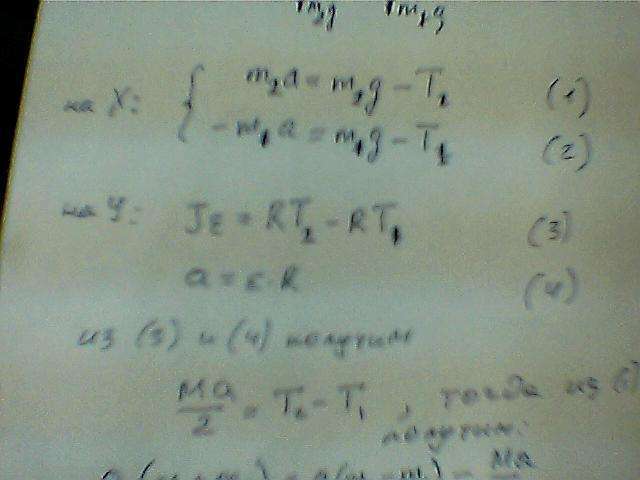 m₂g m₁g
на X: { m₂a = m₂g - T₂ (1)
-m₁a = m₁g - T₁ (2)
на Y: Jε = RT₂ - RT₁ (3)
a = ε·R (4)
из (3) и (4) получим
Ma/2 = T₂ - T₁ , тогда из
получим: